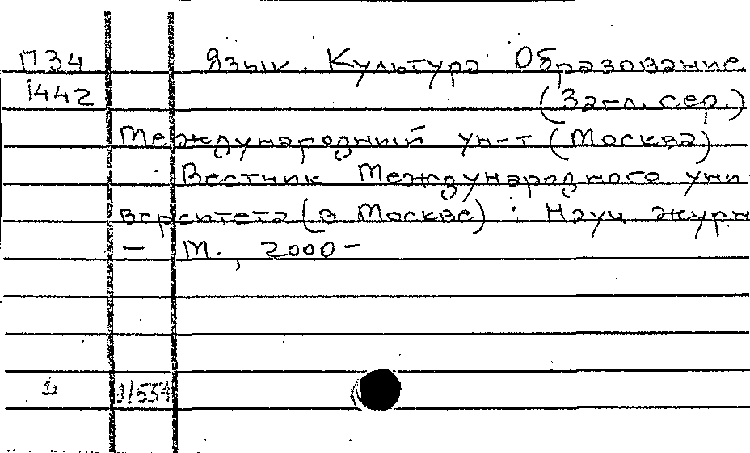 П34 Язык. Культура. Образование
1442 (Загл. сер.)
Международный ун-т (Москва)
Вестник Международного уни
верситета (в Москве) : Науч журн
— М., 2000-
1